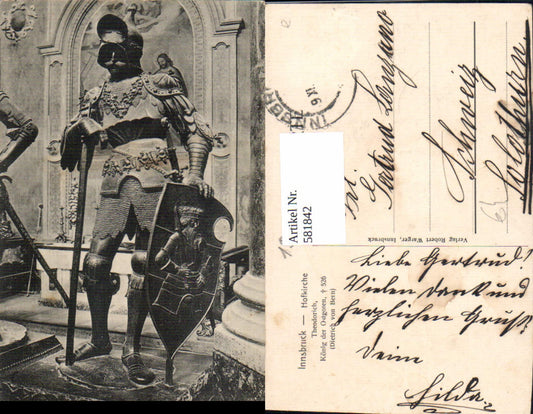 Artikel Nr.
581842
Gertrud
Schweiz
Solothurn
Verlag Robert Warger, Innsbruck
Innsbruck — Hofkirche
Theodorich,
König der Ostgoten, † 526
(Dietrich von Bern)
Liebe Gertrud!
Vielen Dank und
herzlichen Gruß
Deine
Hilda.